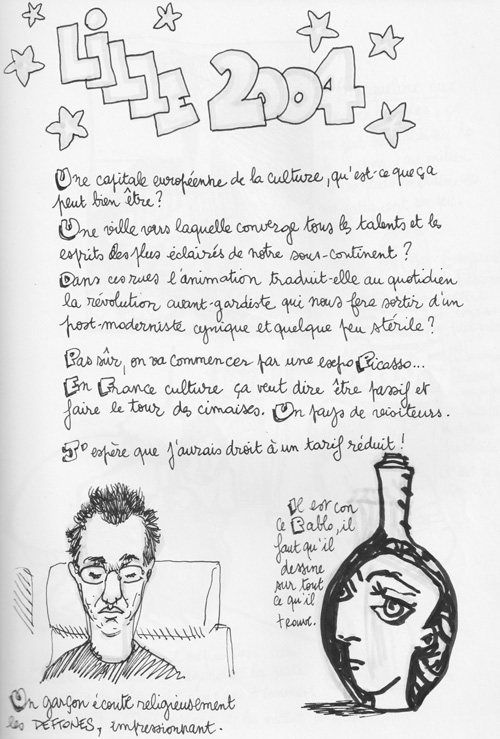 LILLE 2004
Une capitale européenne de la culture, qu'est-ce que ça
peut bien être?
Une ville vers laquelle converge tous les talents et les
esprits des plus éclairés de notre sous-continent?
Dans ces rues l'animation traduit-elle au quotidien
la révolution avant-gardiste qui nous fera sortir d'un
post-moderniste cynique et quelque peu stérile?
Pas sûr, on va commencer par une expo Picasso...
En France culture ça veut dire être passif et
faire le tour des cimaises. Un pays de visiteurs.
J'espère que j'aurais droit à un tarif réduit!
Il est con
ce Pablo, il
faut qu'il
dessine
sur tout
ce qu'il
trouve.
Un garçon écoute religieusement
les DEFTONES, impressionnant.